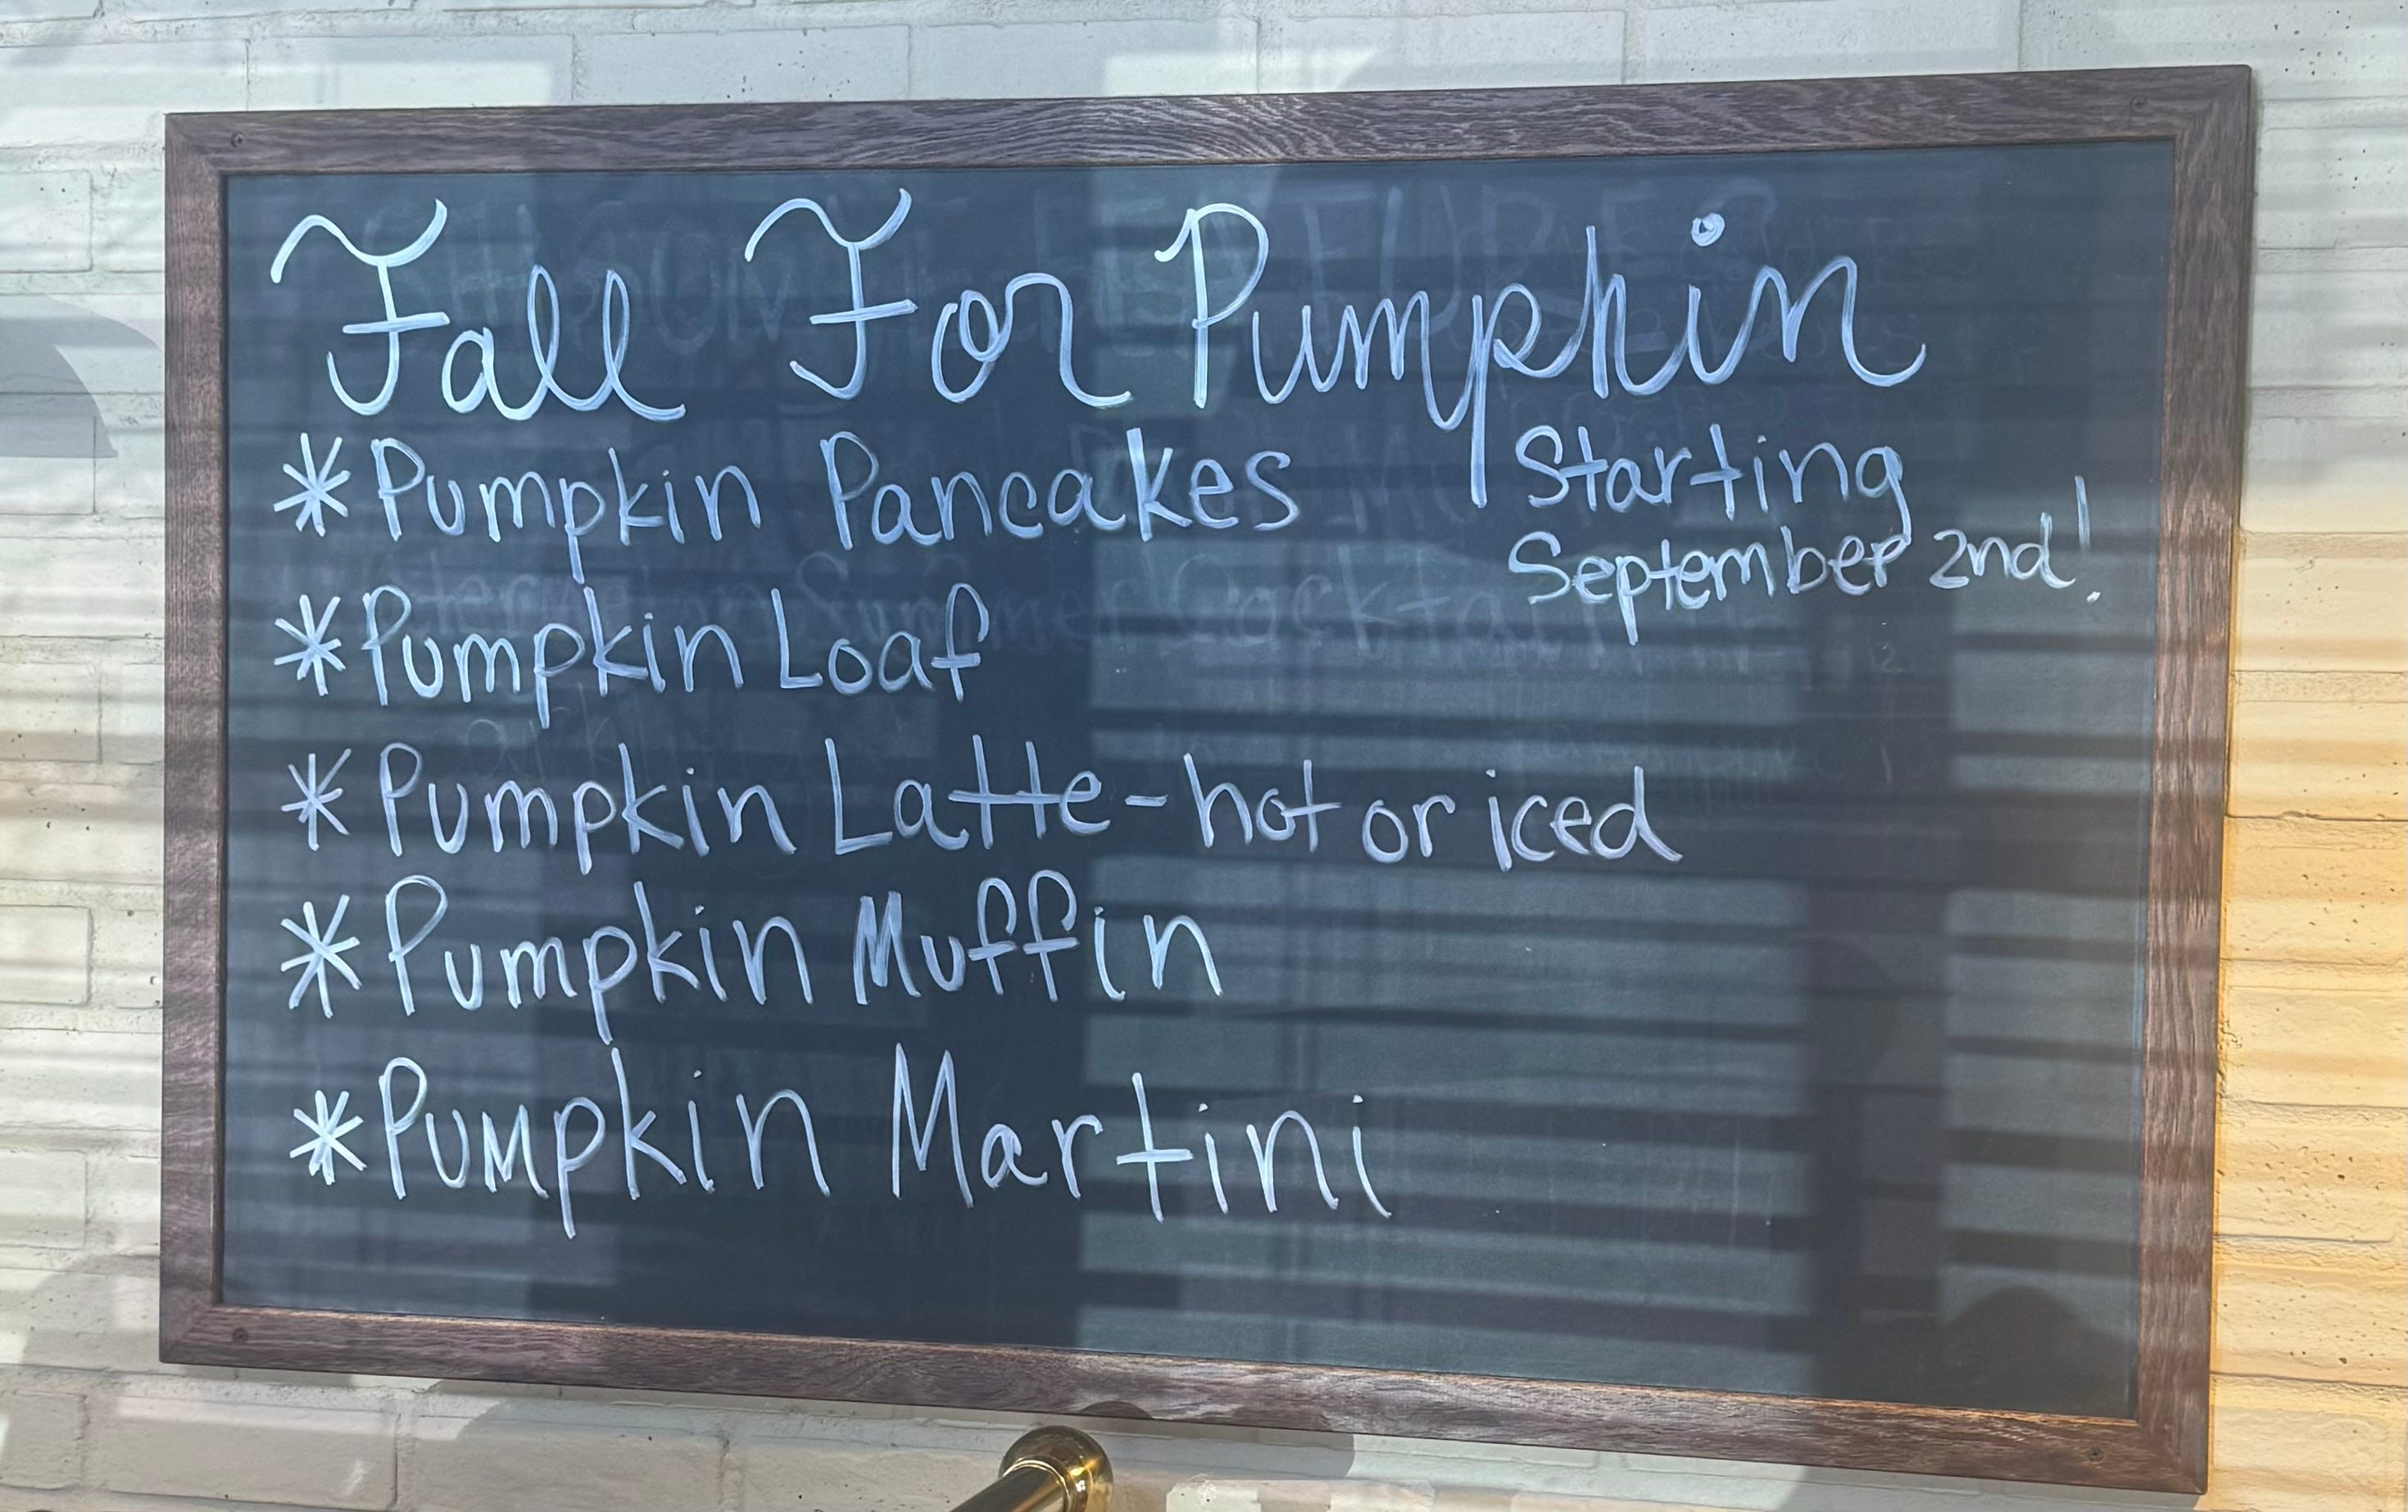 Fall For Pumpkin
* Pumpkin Pancakes
Starting
September 2nd!
* Pumpkin Loaf
* Pumpkin Latte - hot or iced
* Pumpkin Muffin
* Pumpkin Martini